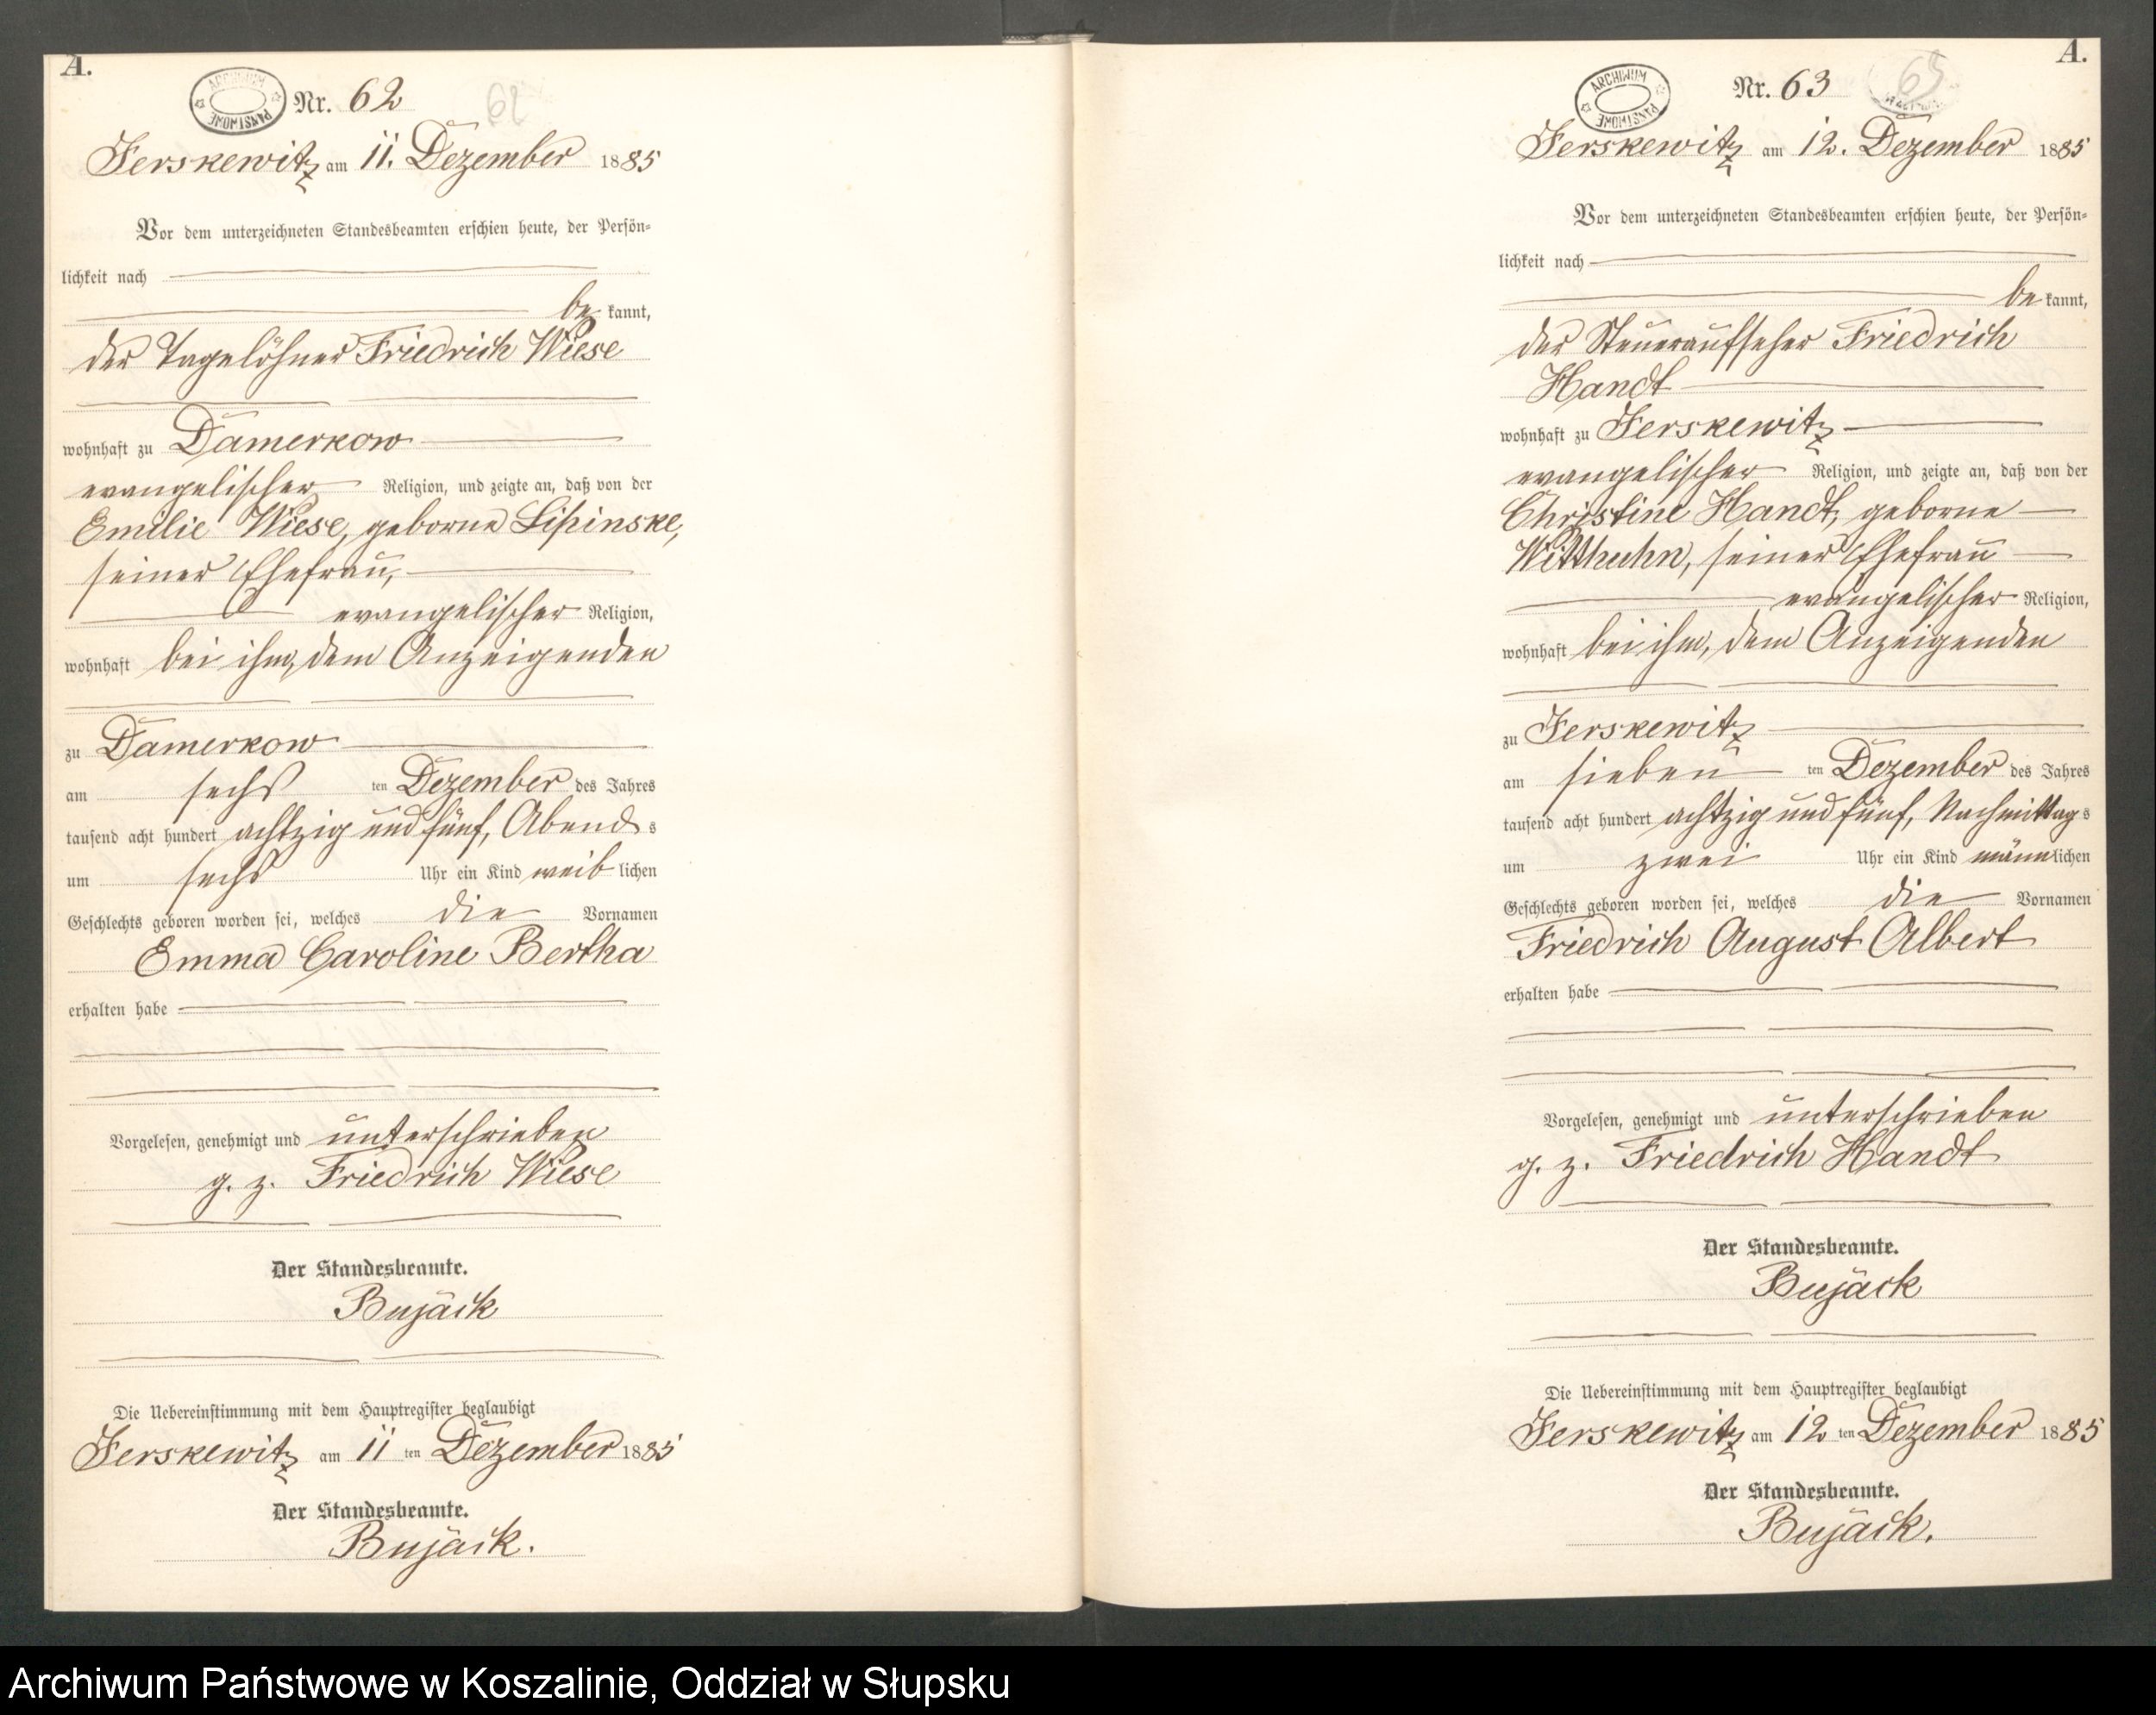 A.
ARCHIWUM PAŃSTWOWE
Nr. 62
62
Jerskewitz am 11. Dezember 1885
Vor dem unterzeichneten Standesbeamten erschien heute, der Persön=
lichkeit nach
be kannt,
der Tagelöhner Friedrich Wiese
wohnhaft zu Damerkow
evangelischer Religion, und zeigte an, daß von der
Emilie Wiese, geborne Lipinske,
seiner Ehefrau,
evangelischer Religion,
wohnhaft bei ihm, dem Anzeigenden
zu Damerkow
am sechs ten Dezember des Jahres
tausend acht hundert achtzig und fünf, Abend s
um sechs Uhr ein Kind weib lichen
Geschlechts geboren worden sei, welches die Vornamen
Emma Caroline Bertha
erhalten habe
Vorgelesen, genehmigt und unterschrieben
g. z. Friedrich Wiese
Der Standesbeamte.
Bujack
Die Uebereinstimmung mit dem Hauptregister beglaubigt
Jerskewitz am 11 ten Dezember 1885
Der Standesbeamte.
Bujack.
A.
ARCHIWUM PAŃSTWOWE
Nr. 63
Jerskewitz am 12. Dezember 1885
Vor dem unterzeichneten Standesbeamten erschien heute, der Persön=
lichkeit nach
be kannt,
der Steueraufseher Friedrich
Handt
wohnhaft zu Jerskewitz
evangelischer Religion, und zeigte an, daß von der
Christine Handt, geborne
Witthuhn, seiner Ehefrau
evangelischer Religion,
wohnhaft bei ihm, dem Anzeigenden
zu Jerskewitz
am sieben ten Dezember des Jahres
tausend acht hundert achtzig und fünf, Nachmittag s
um zwei Uhr ein Kind männlichen
Geschlechts geboren worden sei, welches die Vornamen
Friedrich August Albert
erhalten habe
Vorgelesen, genehmigt und unterschrieben
g. z. Friedrich Handt
Der Standesbeamte.
Bujack
Die Uebereinstimmung mit dem Hauptregister beglaubigt
Jerskewitz am 12 ten Dezember 1885
Der Standesbeamte.
Bujack.
Archiwum Państwowe w Koszalinie, Oddział w Słupsku